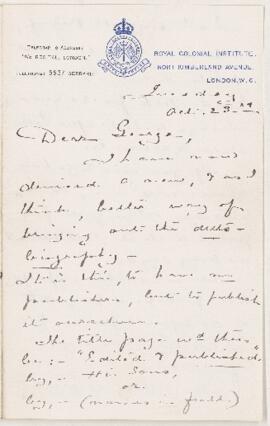 ROYAL COLONIAL INSTITUTE,
NORTHUMBERLAND AVENUE,
LONDON, W.C.
TELEPHONE 5537 GERRARD.
Tuesday
Oct. 23
Dear George,
I have now
devised a new, & as I
think, better way of
bringing out the auto-
biography –
It is this, to have no
publisher, but to publish
it ourselves.
The title page wd then
be: – "Edited & published
by, – His Sons,
or
by, – (names in full)